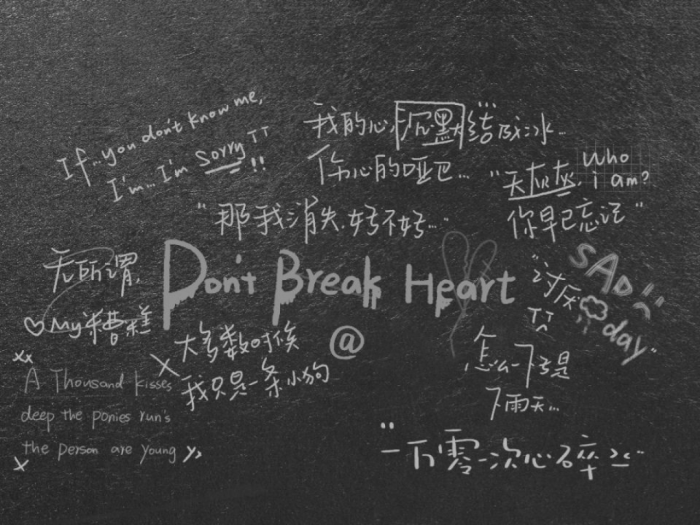 If...you don't know me,
I'm...I'm sorry TT
!!
我的心沉默结成冰...
伤心的哑巴...
"天灰灰,
who
i am?
你早已忘记"
"那我消失.好不好..."
无所谓,
Don't Break Heart
"讨厌
SAD
day"
TT
♡My糟糕
大多数时候
我只是一条小狗
@
怎么下
下雨天...
A Thousand kisses
deep the ponies run's
the person are young
"一万零一次心碎